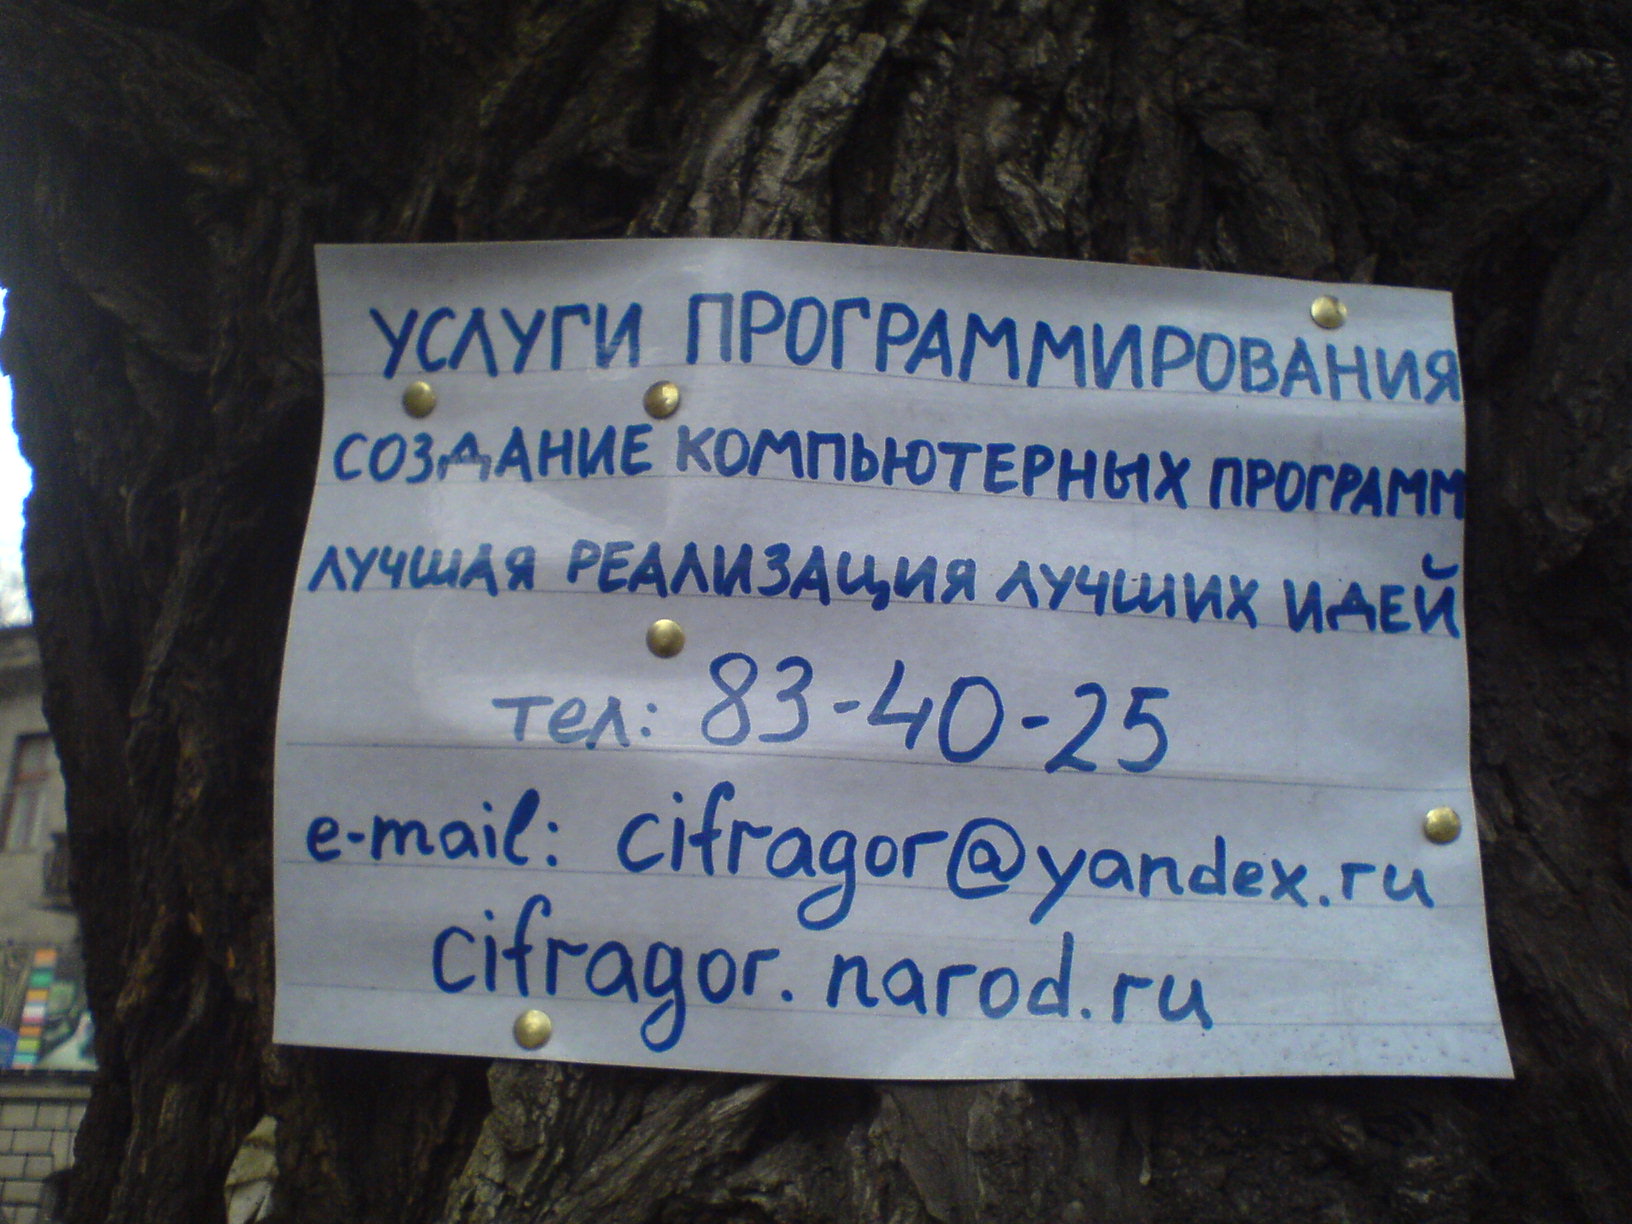 УСЛУГИ ПРОГРАММИРОВАНИЯ
СОЗДАНИЕ КОМПЬЮТЕРНЫХ ПРОГРАММ
ЛУЧШАЯ РЕАЛИЗАЦИЯ ЛУЧШИХ ИДЕЙ
тел: 83-40-25
e-mail: cifragor@yandex.ru
cifragor.narod.ru